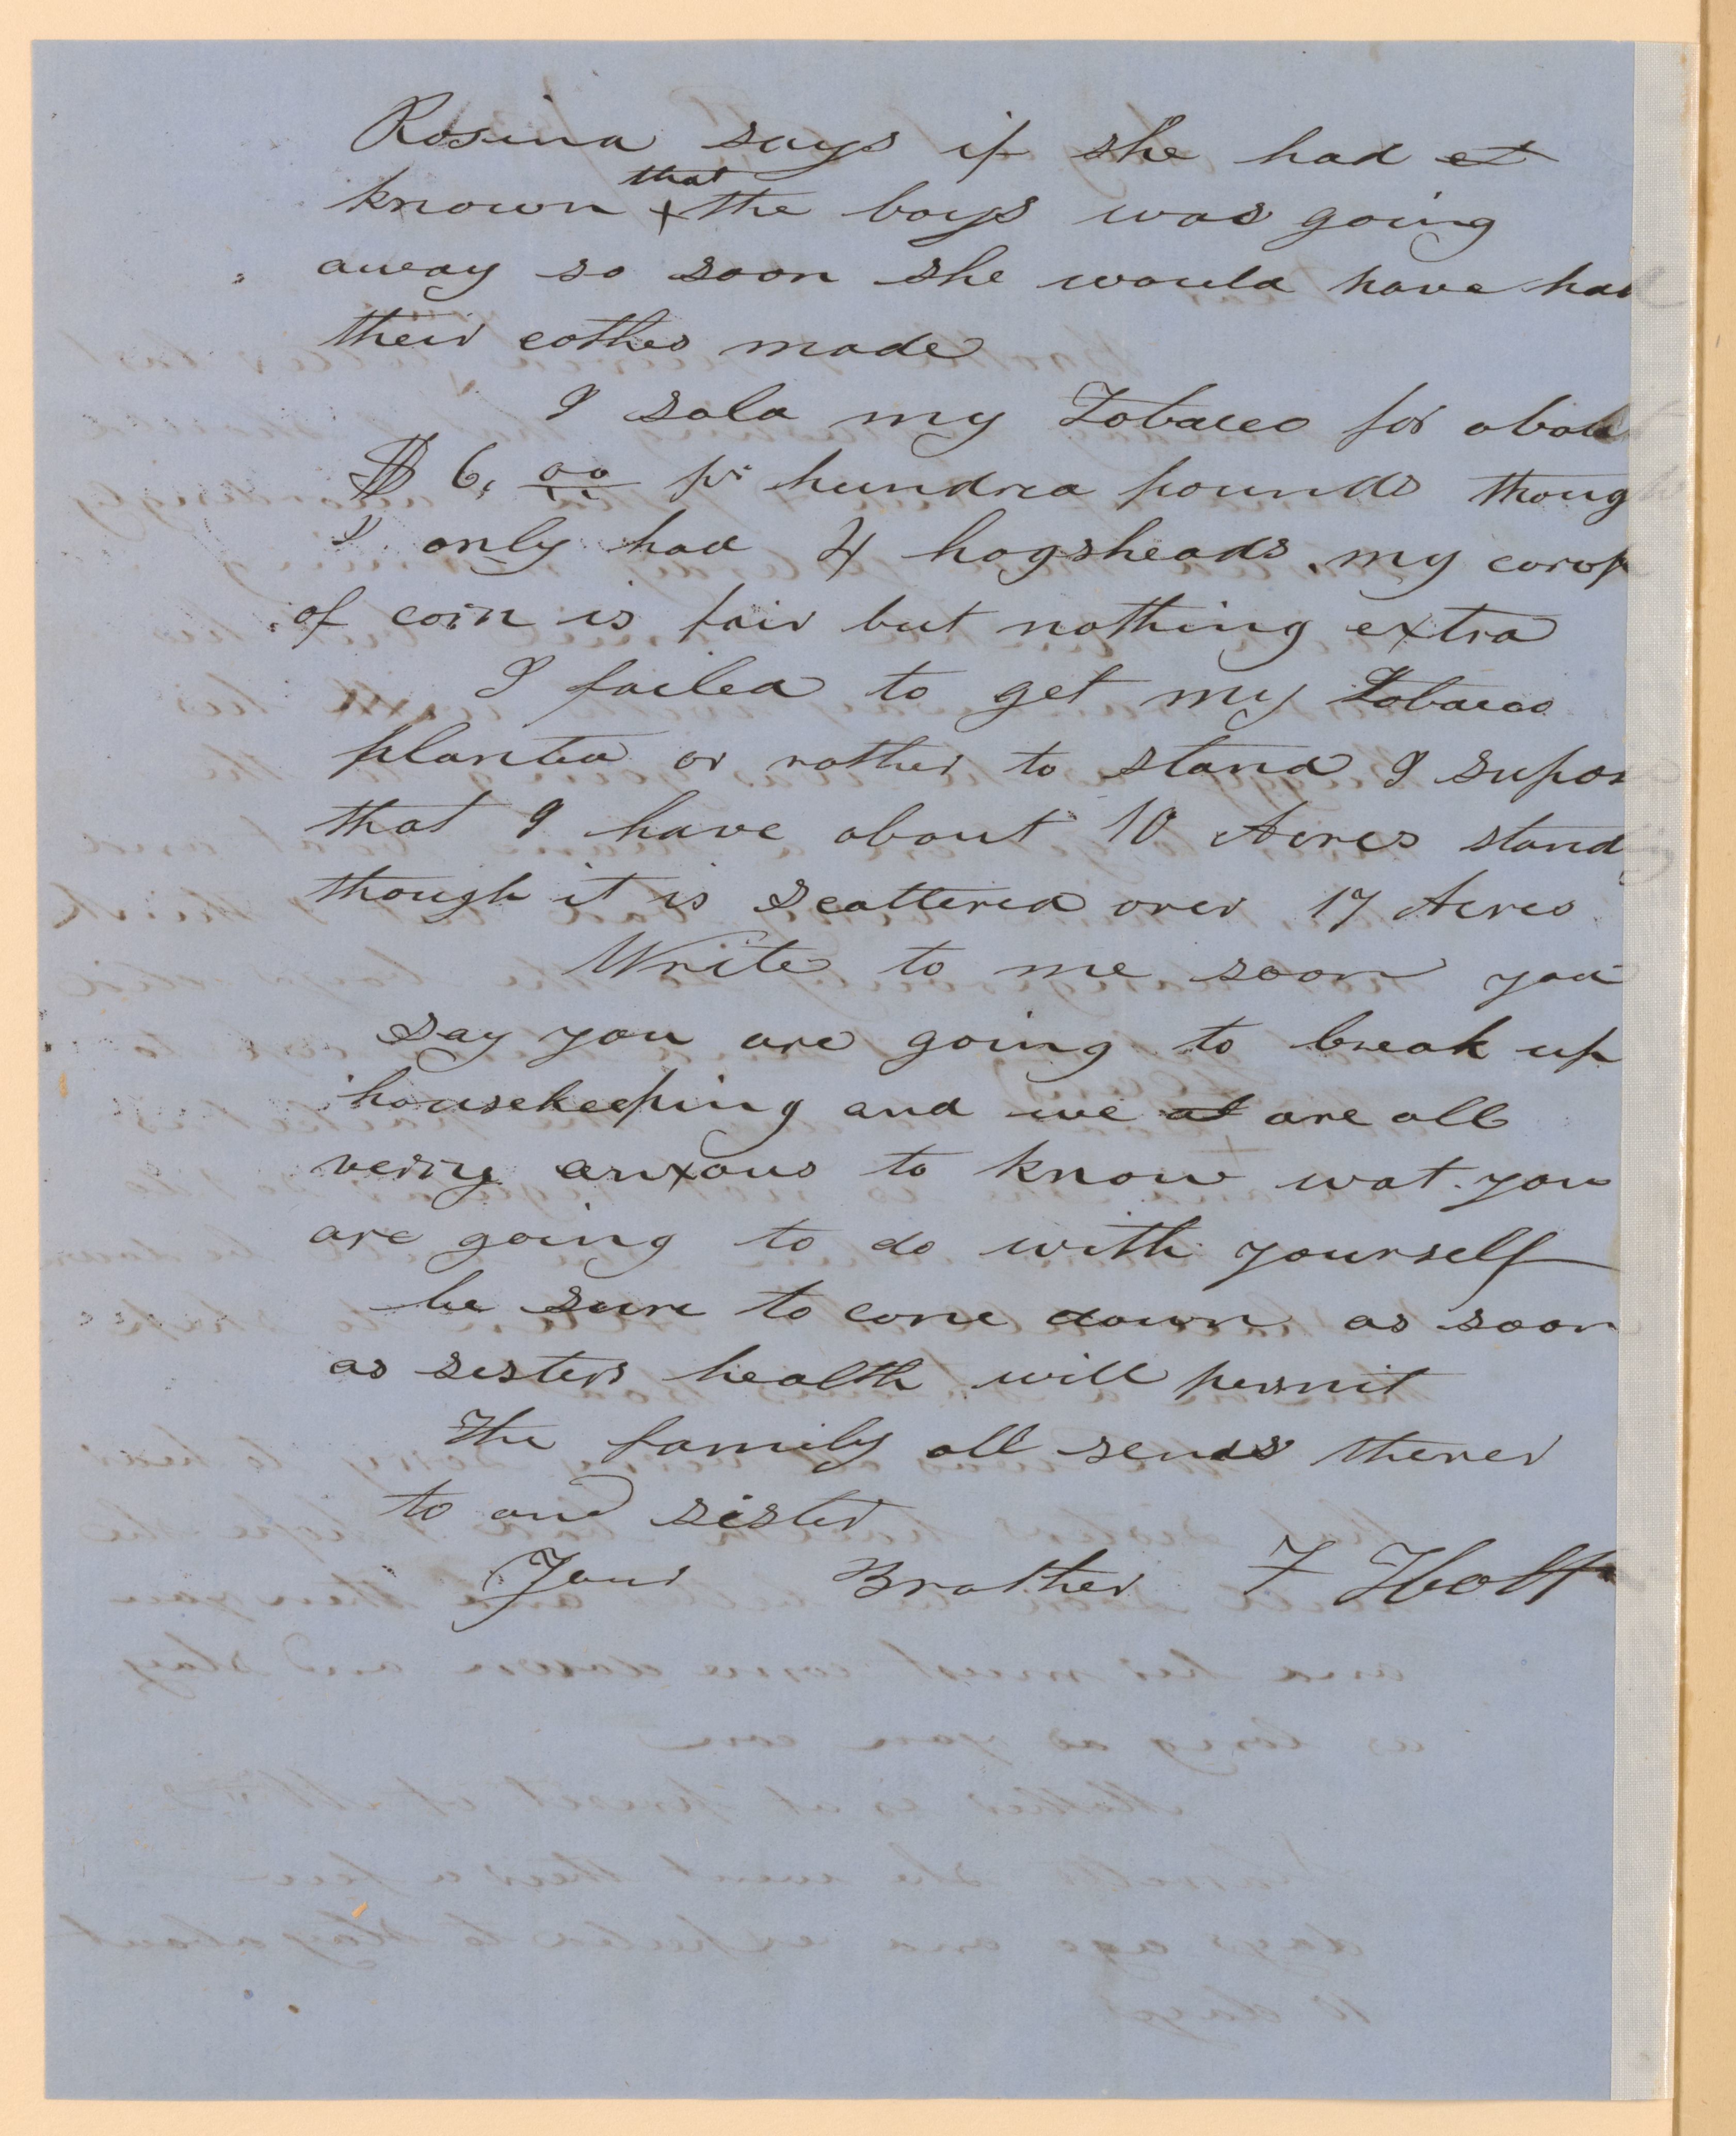 Rosina says if she had et
known that the boys was going
away so soon she would have had
their cothes made
I sold my Tobacco for about
$6,00 pr hundred pounds though
I only had 4 hogsheads. my corop
of corn is fair but nothing extra
I failed to get my Tobacco
planted or rather to stand I supose
that I have about 10 Acres standing
though it is scattered over 17 Acres
Write to me soon you
say you are going to break up
housekeeping and we at are all
verry anxous to know wat you
are going to do with yourself
be sure to come down as soon
as sisters health will permit
The family all sends there
to and sister
Your Brother T Holt